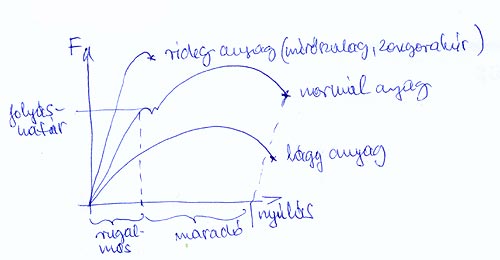 F
rideg anyag (mérőszalag, zongorahúr)
normál anyag
folyás-
határ
lágy anyag
nyúlás
rugal-
mas
maradó